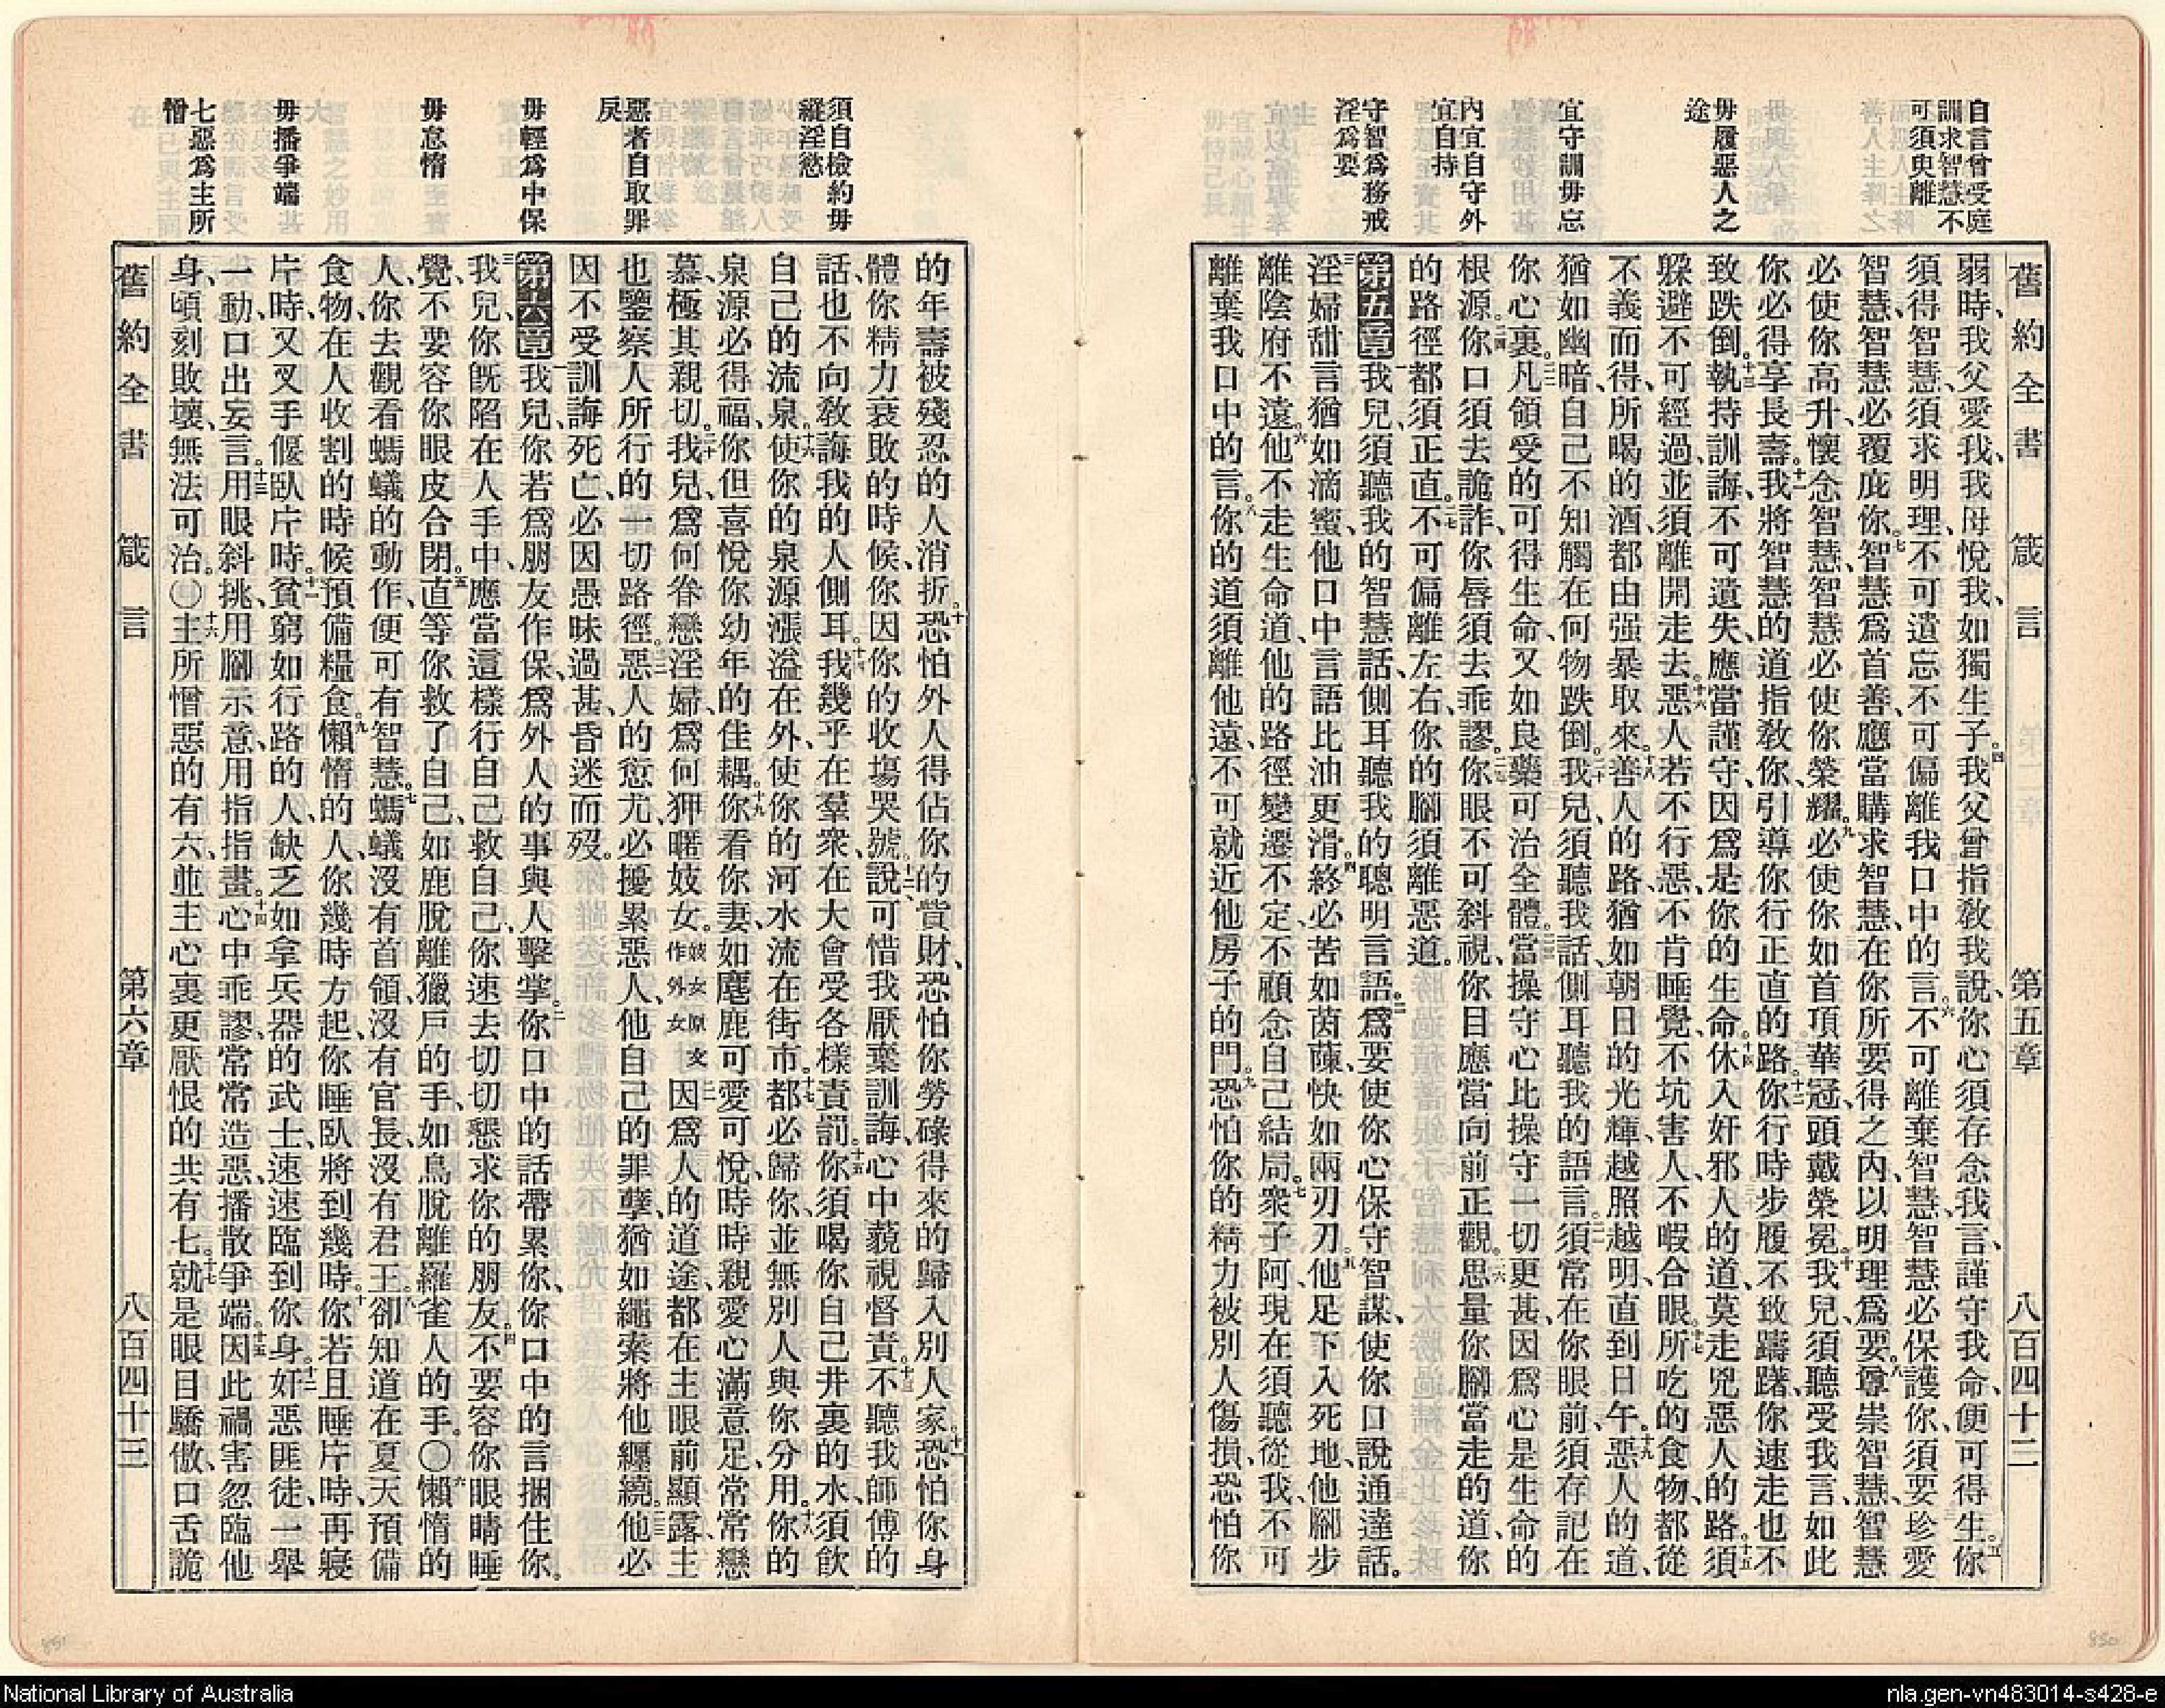 自言曾受庭
訓求智慧不
可須臾離
毋履惡人之
途
宜守訓毋忘
內宜自守外
宜自持
守智爲務戒
淫爲要
舊約全書 箴言 第五章 八百四十二
弱時、我父愛我、我母悅我、如獨生子。四我父曾指教我說、你心須存念我言、謹守我命、便可得生。五你
須得智慧、須求明理、不可遺忘、不可偏離我口中的言。六不可離棄智慧、智慧必保護你、須要珍愛
智慧、智慧必覆庇你。七智慧爲首善、應當購求智慧、在你所要得之內、以明理爲要。八尊崇智慧、智慧
必使你高升、懷念智慧、智慧必使你榮耀。九必使你如首頂華冠、頭戴榮冕。十我兒、須聽受我言、如此
你必得享長壽。十一我將智慧的道指教你、引導你行正直的路。十二你行時步履不致躊躇、你速走也不
致跌倒。十三執持訓誨、不可遺失、應當謹守、因爲是你的生命。十四休入奸邪人的道、莫走兇惡人的路。十五須
躱避不可經過、並須離開走去。十六惡人若不行惡、不肯睡覺、不坑害人、不暇合眼。十七所吃的食物、都從
不義而得、所喝的酒、都由强暴取來。十八善人的路、猶如朝日的光輝、越照越明、直到日午。十九惡人的道、
猶如幽暗、自己不知觸在何物跌倒。二十我兒、須聽我話、側耳聽我的語言。二一須常在你眼前、須存記在
你心裏。二二凡領受的可得生命、又如良藥可治全體。二三當操守心、比操守一切更甚、因爲心是生命的
根源。二四你口須去詭詐、你唇須去乖謬。二五你眼不可斜視、你目應當向前正觀。二六思量你脚當走的道、你
的路徑都須正直。二七不可偏離左右、你的脚須離惡道。
第五章 一我兒、須聽我的智慧話、側耳聽我的聰明言語。二爲要使你心保守智謀、使你口說通達話。
三淫婦甜言猶如滴蜜、他口中言語比油更滑。四終必苦如茵蔯、快如兩刃刀。五他足下入死地、他脚步
離陰府不遠。六他不走生命道、他的路徑變遷不定、不顧念自己結局。七衆子阿、現在須聽從我、不可
離棄我口中的言。八你的道須離他遠、不可就近他房子的門。九恐怕你的精力被別人傷損、恐怕你
須自檢約毋
縱淫慾
惡者自取罪
戾
毋輕爲中保
毋怠惰
毋播爭端
七惡爲主所
憎
的年壽被殘忍的人消折。十恐怕外人得佔你的貲財、恐怕你勞碌得來的歸入別人家。十一恐怕你身
體你精力衰敗的時候、你因你的收塲哭號。十二說、可惜我厭棄訓誨、心中藐視督責。十三不聽我師傅的
話、也不向敎誨我的人側耳。十四我幾乎在羣衆、在大會受各樣責罰。十五你須喝你自己井裏的水、須飮
自己的流泉。十六使你的泉源漲溢在外、使你的河水流在街市。十七都必歸你、並無別人與你分用。十八你的
泉源必得福、你但喜悅你幼年的佳耦。十九你看你妻、如麀鹿可愛可悅、時時親愛、心滿意足、常常戀
慕、極其親切。二十我兒、爲何眷戀淫婦、爲何狎暱妓女。妓女原文作外女二一因爲人的道途、都在主眼前顯露、主
也鑒察人所行的一切路徑。二二惡人的愆尤、必擾累惡人、他自己的罪孽、猶如繩索將他纒繞。二三他必
因不受訓誨死亡、必因愚昧過甚、昏迷而歿。
第六章 一我兒、你若爲朋友作保、爲外人的事與人擊掌。二你口中的話帶累你、你口中的言捆住你。
三我兒、你旣陷在人手中、應當這樣行自己救自己、你速去切切懇求你的朋友。四不要容你眼睛睡
覺、不要容你眼皮合閉。五直等你救了自己、如鹿脫離獵戶的手、如鳥脫離羅雀人的手。〇六懶惰的
人、你去觀看螞蟻的動作、便可有智慧。七螞蟻沒有首領、沒有官長、沒有君王。八卻知道在夏天預備
食物、在人收割的時候預備糧食。九懶惰的人、你幾時方起、你睡臥將到幾時。十你若且睡片時、再寢
片時、又叉手偃臥片時。十一貧窮如行路的人、缺乏如拿兵器的武士、速速臨到你身。十二奸惡匪徒、一舉
一動、口出妄言。十三用眼斜挑、用脚示意、用指指畫。十四心中乖謬、常常造惡、播散爭端。十五因此禍害忽臨他
身、頃刻敗壞、無法可治。〇十六主所憎惡的有六、並主心裏更厭恨的共有七。十七就是眼目驕傲、口舌詭
舊約全書 箴言 第六章 八百四十三
850
851
National Library of Australia
nla.gen-vn483014-s428-e